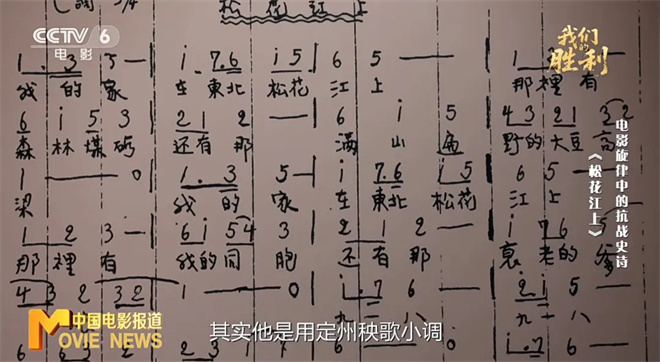 CCTV 6
电影
我们的胜利
松花江上
3/4
1. 3 5 — | i 7.6 i 5 | 6 5 — | 1 3 —
我的家 在東北 松花江上 那裡有
6 i 5 3 | 2 1 2 — | 6 i 5 | 4 3 2 1 3 2
森林煤矿 还有那 满山遍 野的大豆高
1 — 0 | 1. 3 5 — | i 7.6 i 5 | 6 5 —
梁 我的家 在東北 松花 江上
1 2 3 — | 6 i 5 4 3 | 2 1 2 — | i 7 6 5
那裡有 我的同胞 还有那 衰老的爹
4 3 2 3 2 | 1 — 0 | i. 7 6 — | 2 i 5 —
九一八 九一八
电影旋律中的抗战史诗
《松花江上》
中国电影报道
MOVIE NEWS
其实他是用定州秧歌小调